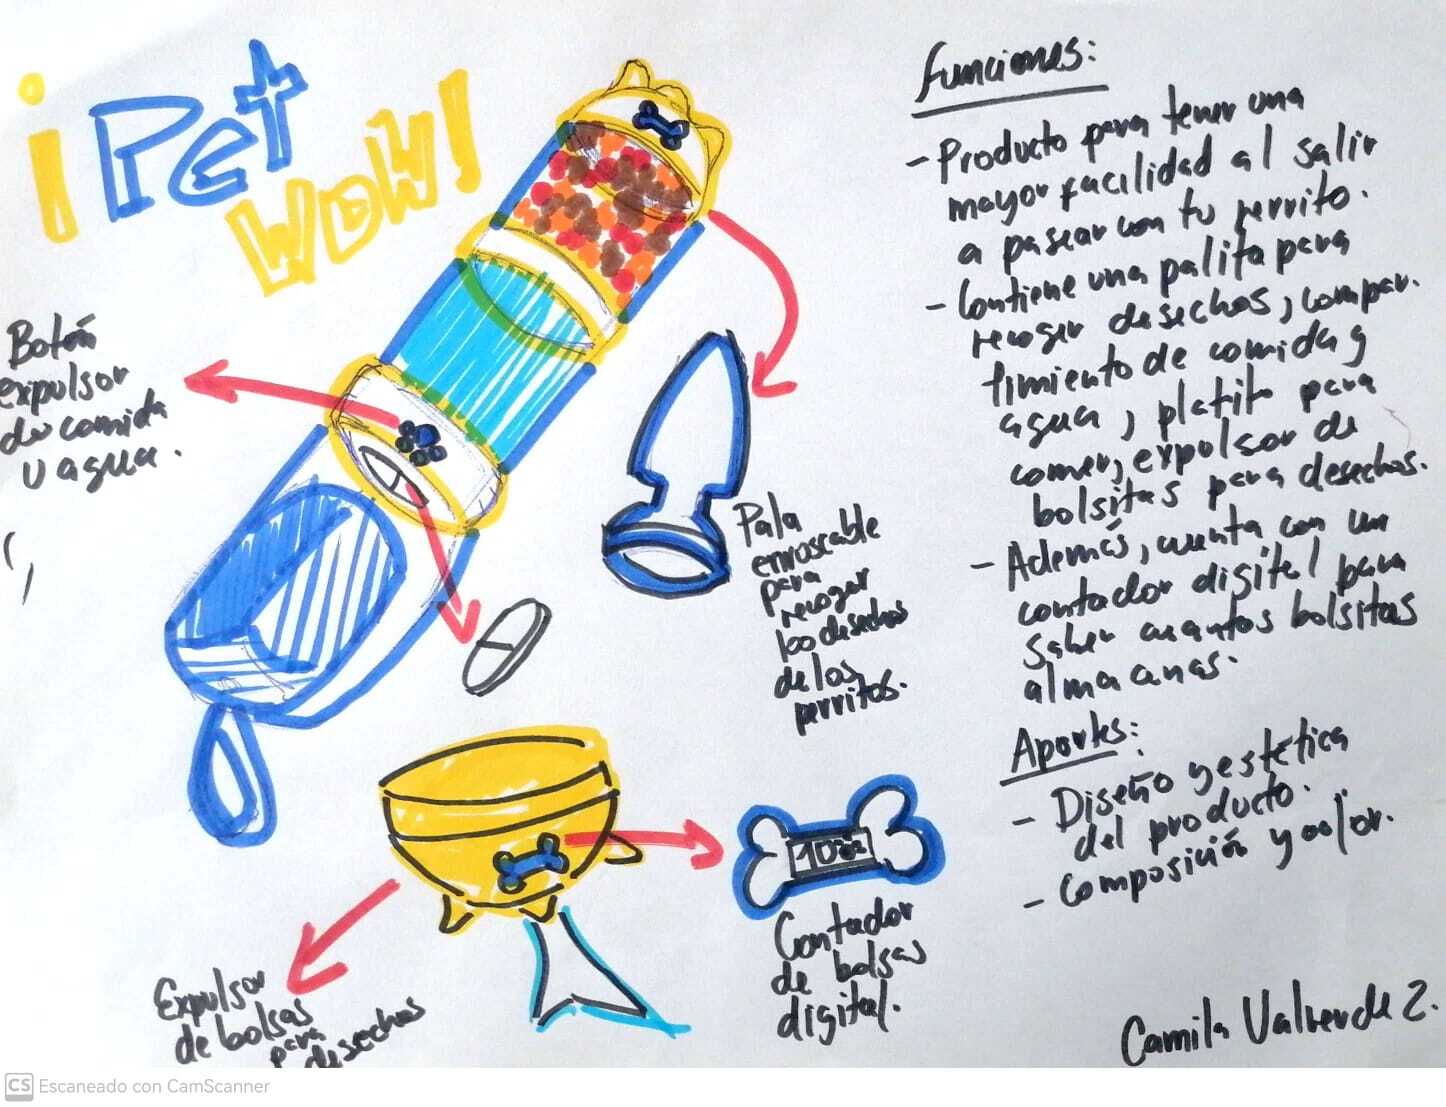 ¡Pet
WOW!
Botón
expulsor
de comida
y agua.
Pala
enroscable
para
recoger
los desechos
de los
perritos.
1000
Contador
de bolsas
digital.
Expulsor
de bolsas
para
desechos
Funciones:
- Producto para tener una
mayor facilidad al salir
a pasear con tu perrito.
- Contiene una palita para
recoger desechos, compar-
timiento de comida y
agua, platito para
comer, expulsor de
bolsitas para desechos.
- Además, cuenta con un
contador digital para
saber cuantos bolsitas
almacenas.
Aportes:
- Diseño y estética
del producto.
- Composición y color.
Camila Valverde Z.
CS Escaneado con CamScanner